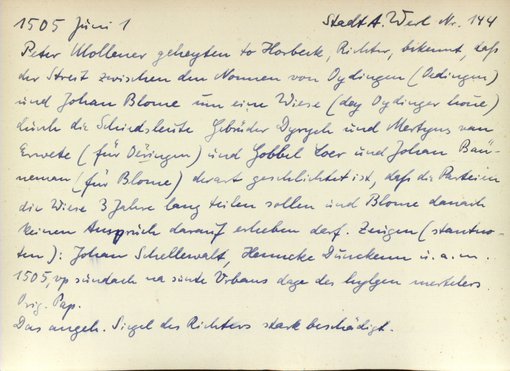 1505 Juni 1 Stadt A. Werl Nr. 144
Peter Mollener geheyten to Horbeck, Richter, bikennt, daß
der Streit zwischen den Nonnen von Oydingen (Oedingen)
und Johan Blome um eine Wiese (dey Oydinger houe)
durch die Schiedsleute Gebrüder Dyrych und Mertyns van
Erwete (für Oedingen) und Gobbel Loer und Johan Bau-
neman (für Blome) derart geschlichtet ist, daß die Parteien
die Wiese 3 Jahre lang teilen sollen und Blome danach
keinen Anspruch darauf erheben darf. Zeugen (stantno-
ten): Johan Schellewalt, Henneke Dünckenn u. a. m.
1505, vp sundach na sunte Vrbans dage des hylgen mertelers
Orig. Pap.
Das angeh. Siegel des Richters stark beschädigt.